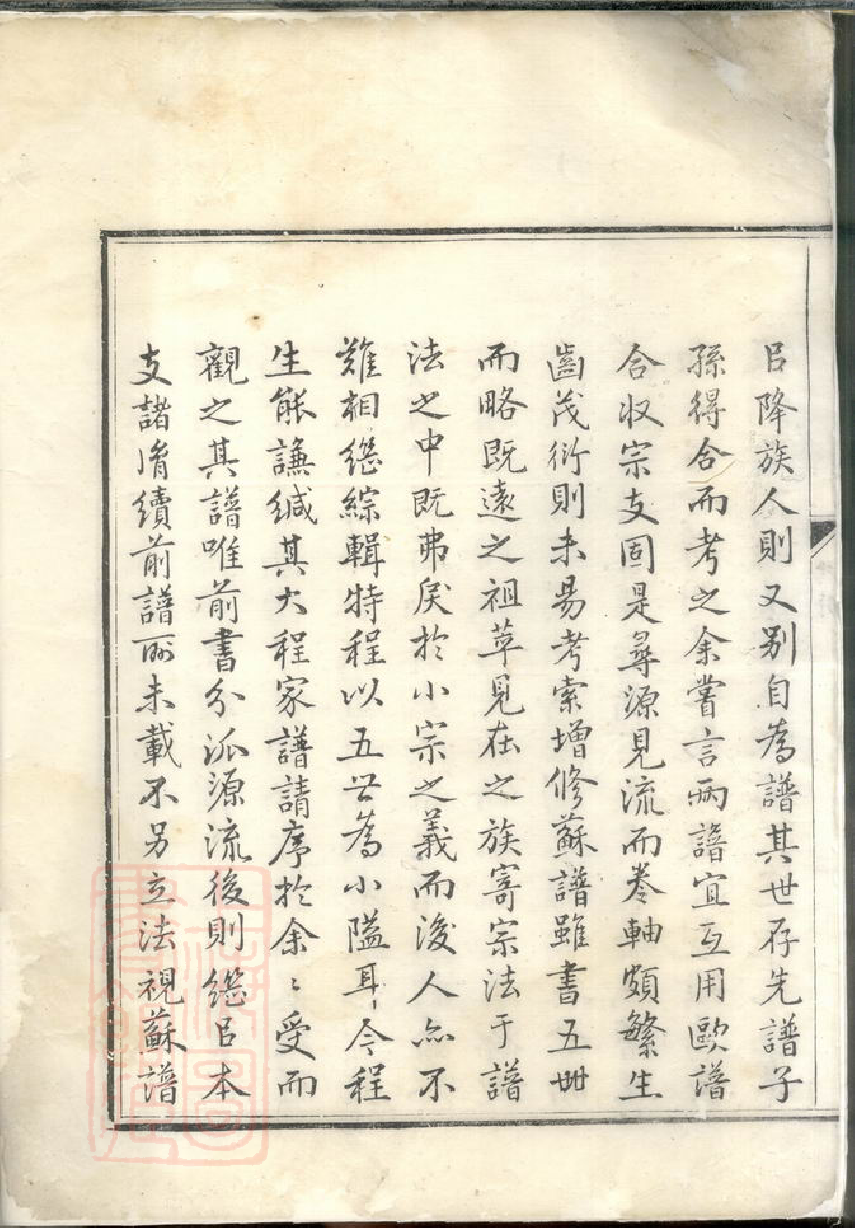 㠯降族人則又别自為譜其世存先譜子
孫得合而考之余嘗言兩譜宜互用歐譜
合收宗支固是尋源見流而卷軸頗繁生
齒茂衍則未易考索增修蘇譜雖書五世
而略既遠之祖萃見在之族寄宗法于譜
法之中既弗戾於小宗之義而後人亦不
難相繼綜輯特程以五世為小隘耳今程
生能謙緘其大程家譜請序於余〻受而
觀之其譜唯前書分派源流後則繼㠯本
支諸脩續前譜所未載不另立法視蘇譜